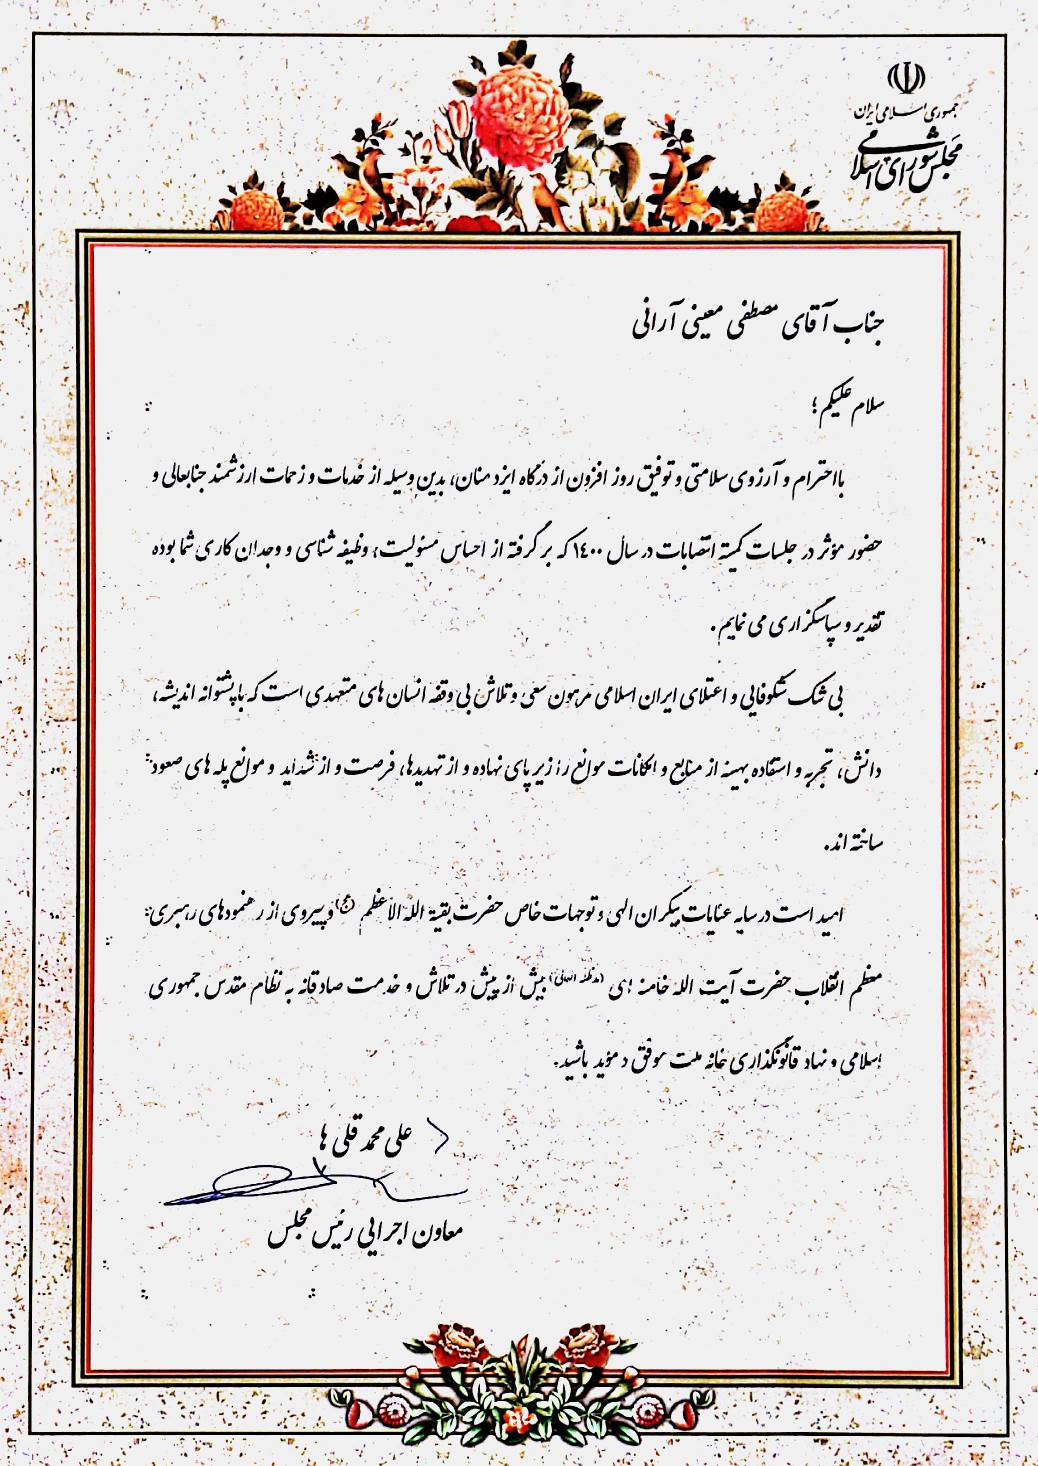 جمهوری اسلامی ایران
مجلس شورای اسلامی
جناب آقای مصطفی معینی آرانی
سلام علیکم؛
با احترام و آرزوی سلامتی و توفیق روز افزون از درگاه ایزد منان، بدین وسیله از خدمات و زحمات ارزشمند جنابعالی و
حضور مؤثر در جلسات کمیته انتصابات در سال ۱۴۰۰ که بر گرفته از احساس مسئولیت، وظیفه شناسی و وجدان کاری شما بوده
تقدیر و سپاسگزاری می نمایم.
بی شک شکوفایی و اعتلای ایران اسلامی مرهون سعی و تلاش بی وقفه انسان های متعهدی است که با پشتوانه اندیشه،
دانش، تجربه و استفاده بهینه از منابع و امکانات موانع را زیر پای نهاده و از تهدیدها، فرصت و از شداید و موانع پله های صعود
ساخته اند.
امید است در سایه عنایات بیکران الهی و توجهات خاص حضرت بقیة الله الاعظم (عج) و پیروی از رهنمودهای رهبری
معظم انقلاب حضرت آیت الله خامنه ای (مدظله العالی) بیش از پیش در تلاش و خدمت صادقانه به نظام مقدس جمهوری
اسلامی و نهاد قانونگذاری خانه ملت موفق و مؤید باشید.
علی محمد قلی ها
معاون اجرایی رئیس مجلس